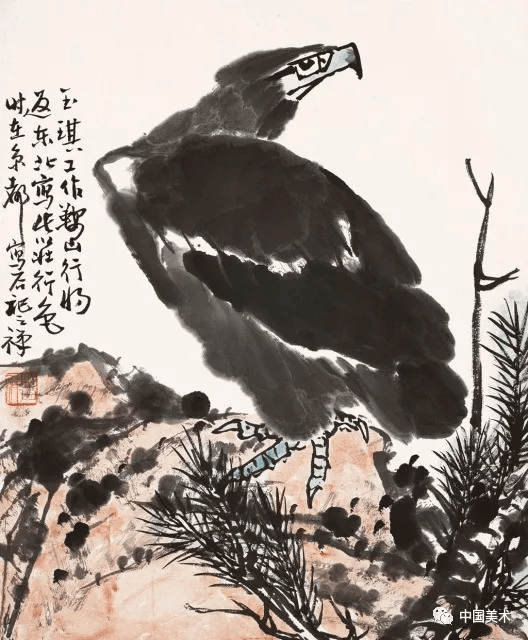 玉琪工作鞍山行将
返东北写此壮行色
时在京都石之禅
中国美术